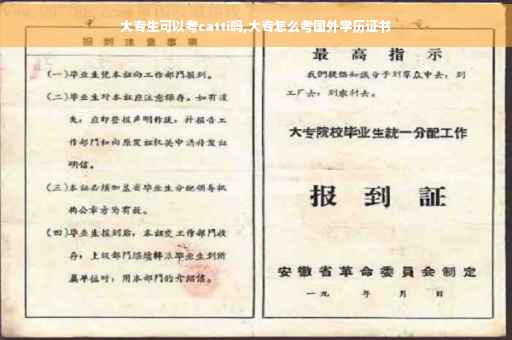 大专生可以考catti吗,大专怎么考国外学历证书
报到注意事项
(一)毕业生凭本证向工作部门报到。
(二)毕业生对本证应注意保存。如有遗
失,应即登报声明作废,并报告工
作部门和向原发证机关申请补发证
明信。
(三)本证必须加盖省毕业生分配领导机
构公章方为有效。
(四)毕业生报到后,本证交工作部门收
存;上级部门继续转派毕业生到所
属单位时,用本部门的介绍信。
最高指示
我们提倡知识分子到群众中去,到
工厂去,到农村去。
大专院校毕业生统一分配工作
报到証
安徽省革命委员会制定
一九 年 月 日